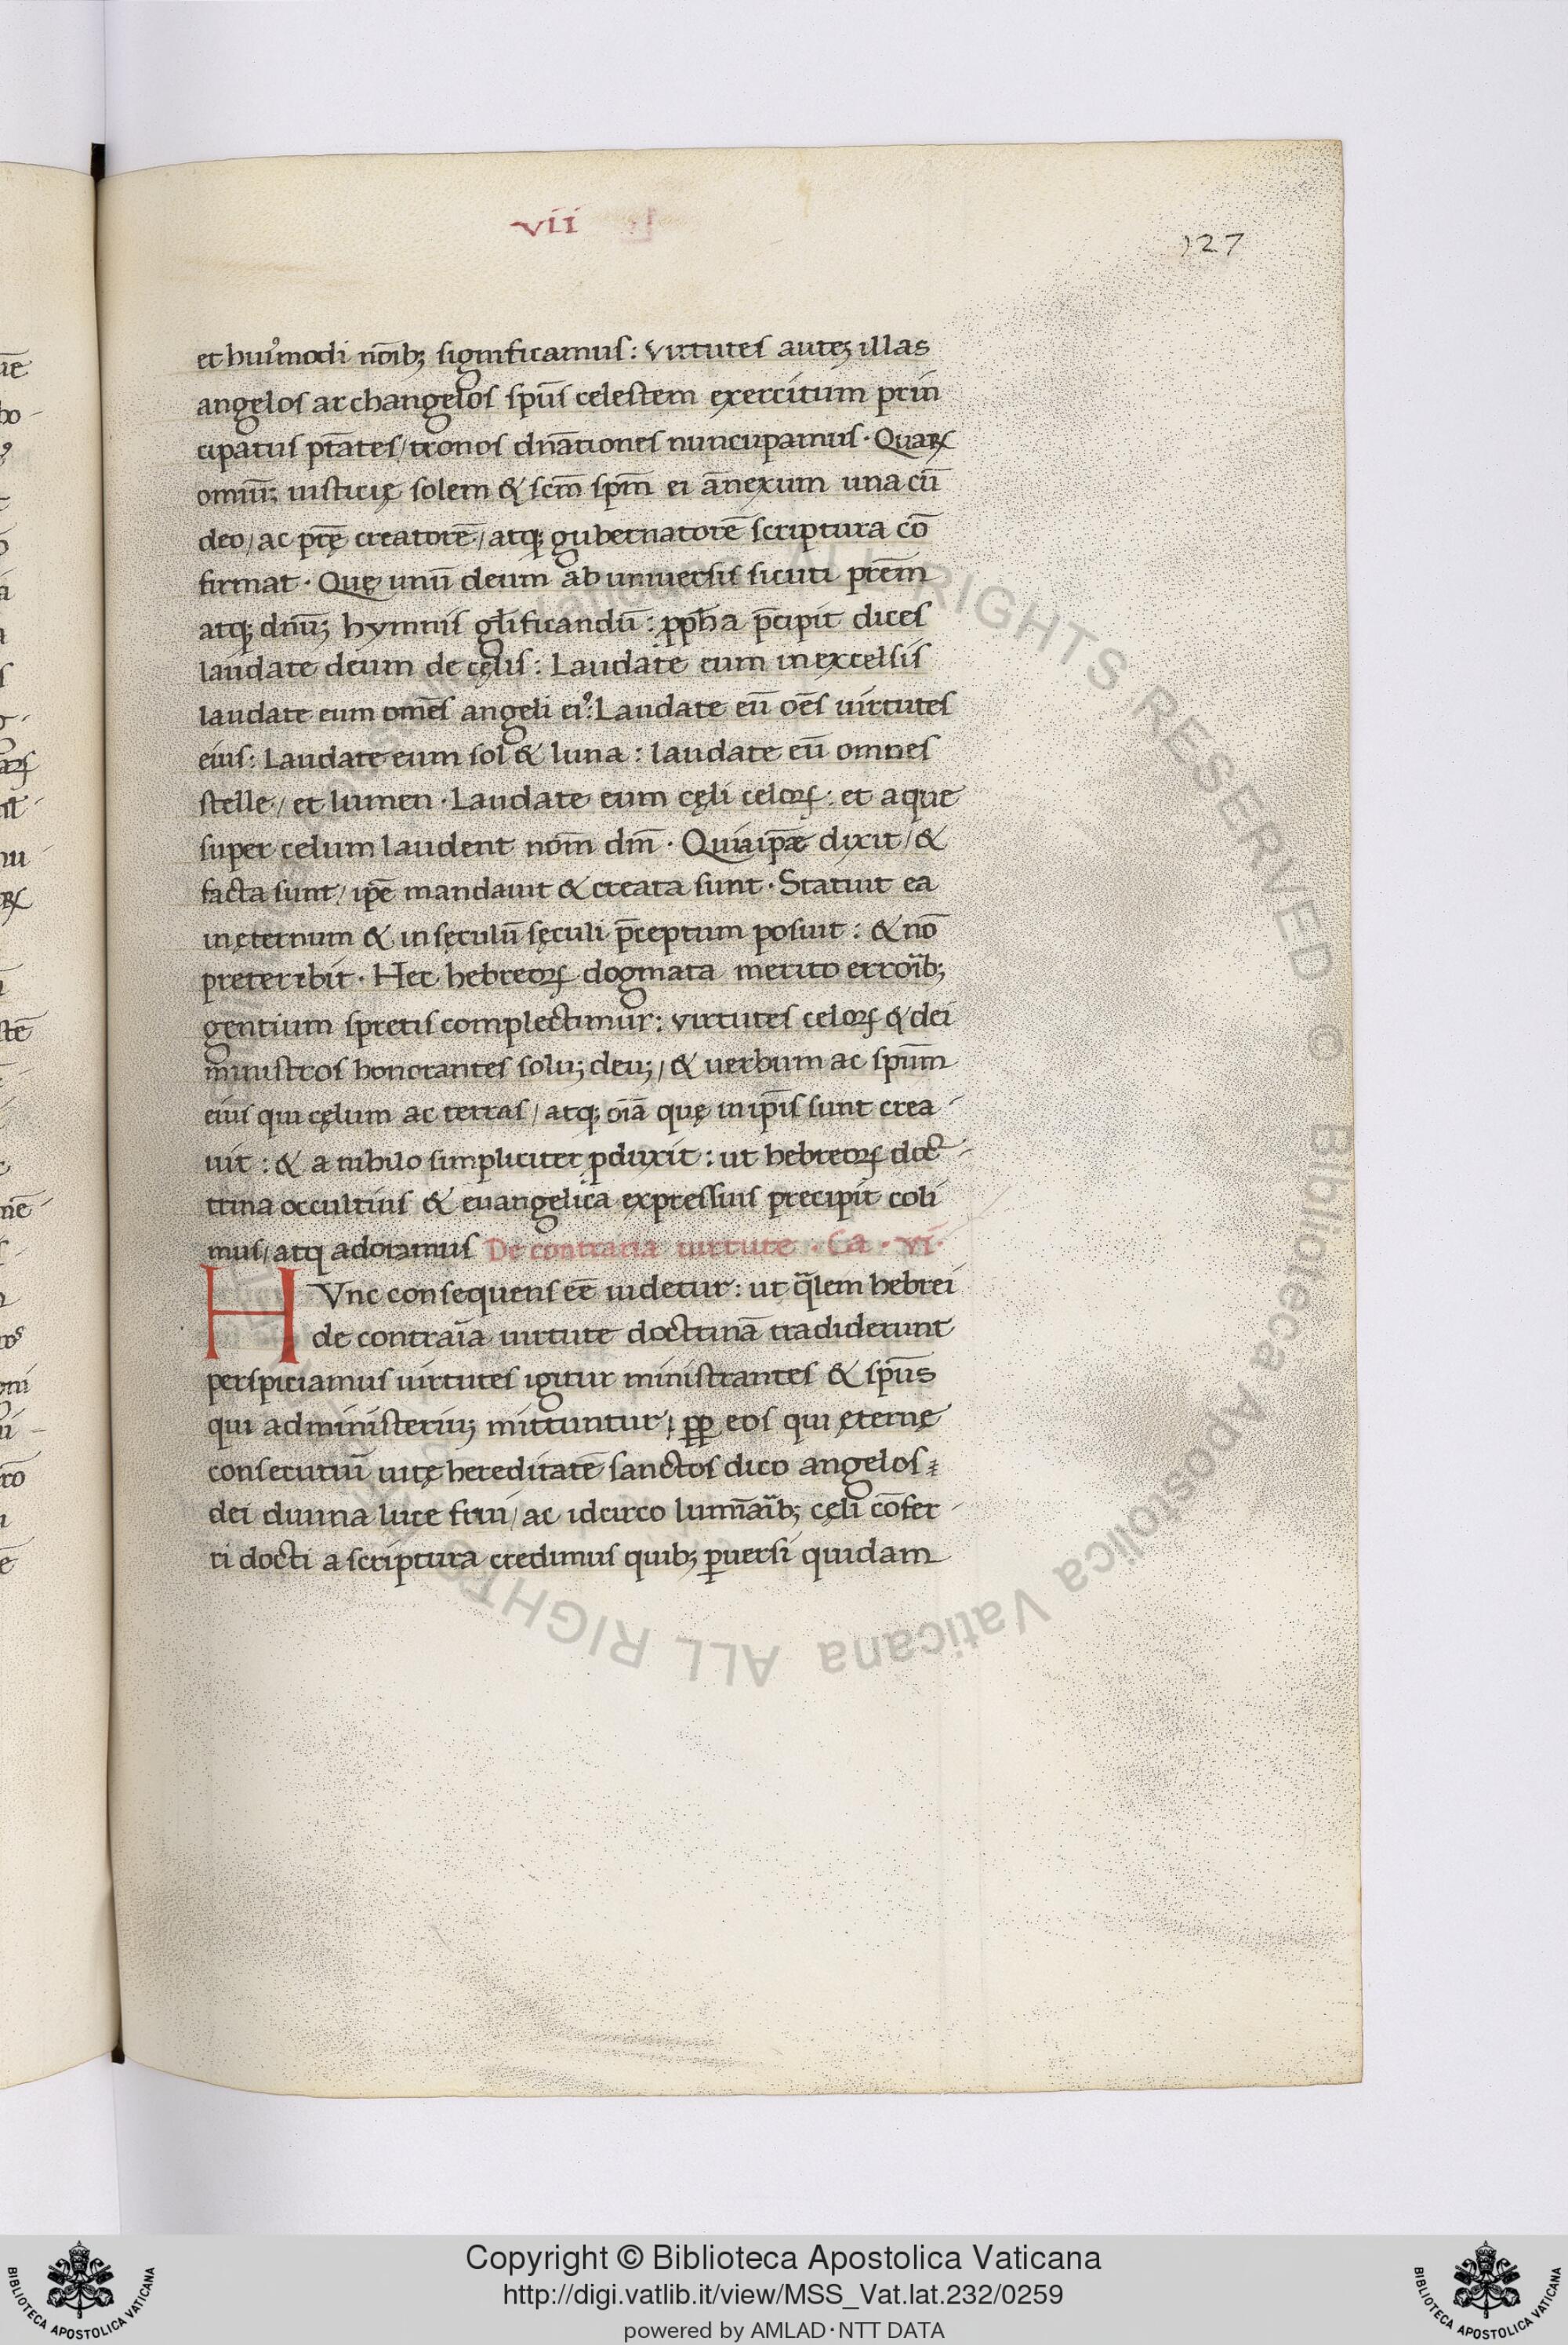 vii
127
et huiꝰmodi nōıbꝫ significamus: virtutes auteꝫ illas
angelos archangelos spūs celestem exercitum prin
cipatus ptātes/ tronos dn̄ationes nuncupamus · Quaꝝ
omiuꝫ iusticię solem & scm̄ spm̄ ei ānexum una cū
deo/ ac prę̄ creatorē/ atqꝫ gubernatorē scriptura cō
firmat · Quę unū deum ab uniuersis sicuti prēm
atqꝫ dn̄uꝫ hymnis gl̄ificandū: ꝓph̄a p̄cipit dices
laudate deum de cęlis: Laudate eum in excelsis
laudate eum om̄es angeli eiꝰ: Laudate eū oēs uirtutes
eius: Laudate eum sol & luna: laudate eū omnes
stelle/ et lumen · Laudate eum cęli celoꝝ: et aque
super celum laudent nom̄ dm̄ · Quia ip̄ae dixit/ &
facta sunt/ ip̄e mandauit & creata sunt · Statuit ea
in ęternum & in sęculū sęculi p̄ceptum posuit: & nō
preteribit · Hec hebreoꝝ dogmata merito erroībꝫ
gentium spretis complectimur: virtutes celoꝝ & dei
ministros honorantes soluꝫ deuꝫ/ & uerbum ac spūm
eius qui cęlum ac terras/ atqꝫ oīa quę in ip̄is sunt crea-
uit: & a nihilo simpliciter ꝓduxit: ut hebreoꝝ doc-
trina occultius & euangelica expressius precipit coli
mus/ atq adoramus De contraria uirtute · Ca · vi ·
HVnc consequens eē uidetur: ut qlem hebrei
de contraīa uirtute doctrinā tradiderunt
perspiciamus uirtutes igitur ministrantes & spūs
qui ad ministeriuꝫ mittuntur/ ꝓp eos qui ęternę
consecuturī uitę hereditatē sanctos dico angelos
dei diuina luce frui/ ac idcirco lumīaībꝫ cęli cōfer-
ri docti a scriptura credimus quibꝫ ꝑuersi quidam
ALL RIGHTS RESERVED © Biblioteca Apostolica Vaticana
Copyright © Biblioteca Apostolica Vaticana
http://digi.vatlib.it/view/MSS_Vat.lat.232/0259
powered by AMLAD·NTT DATA
BIBLIOTECA APOSTOLICA VATICANA
BIBLIOTECA APOSTOLICA VATICANA